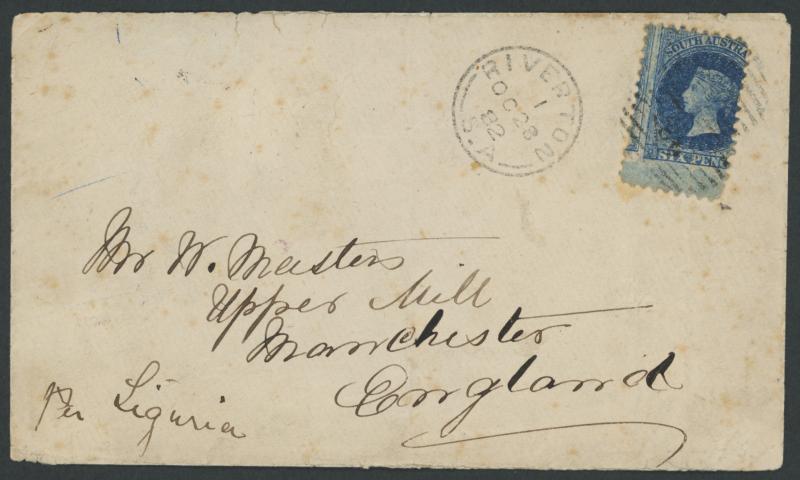 RIVERTON
1
OC 28
82
S.A
SOUTH AUSTRA
SIX PEN
Mr W. Masters
Upper Mill
Manchester
England
Per Liguria